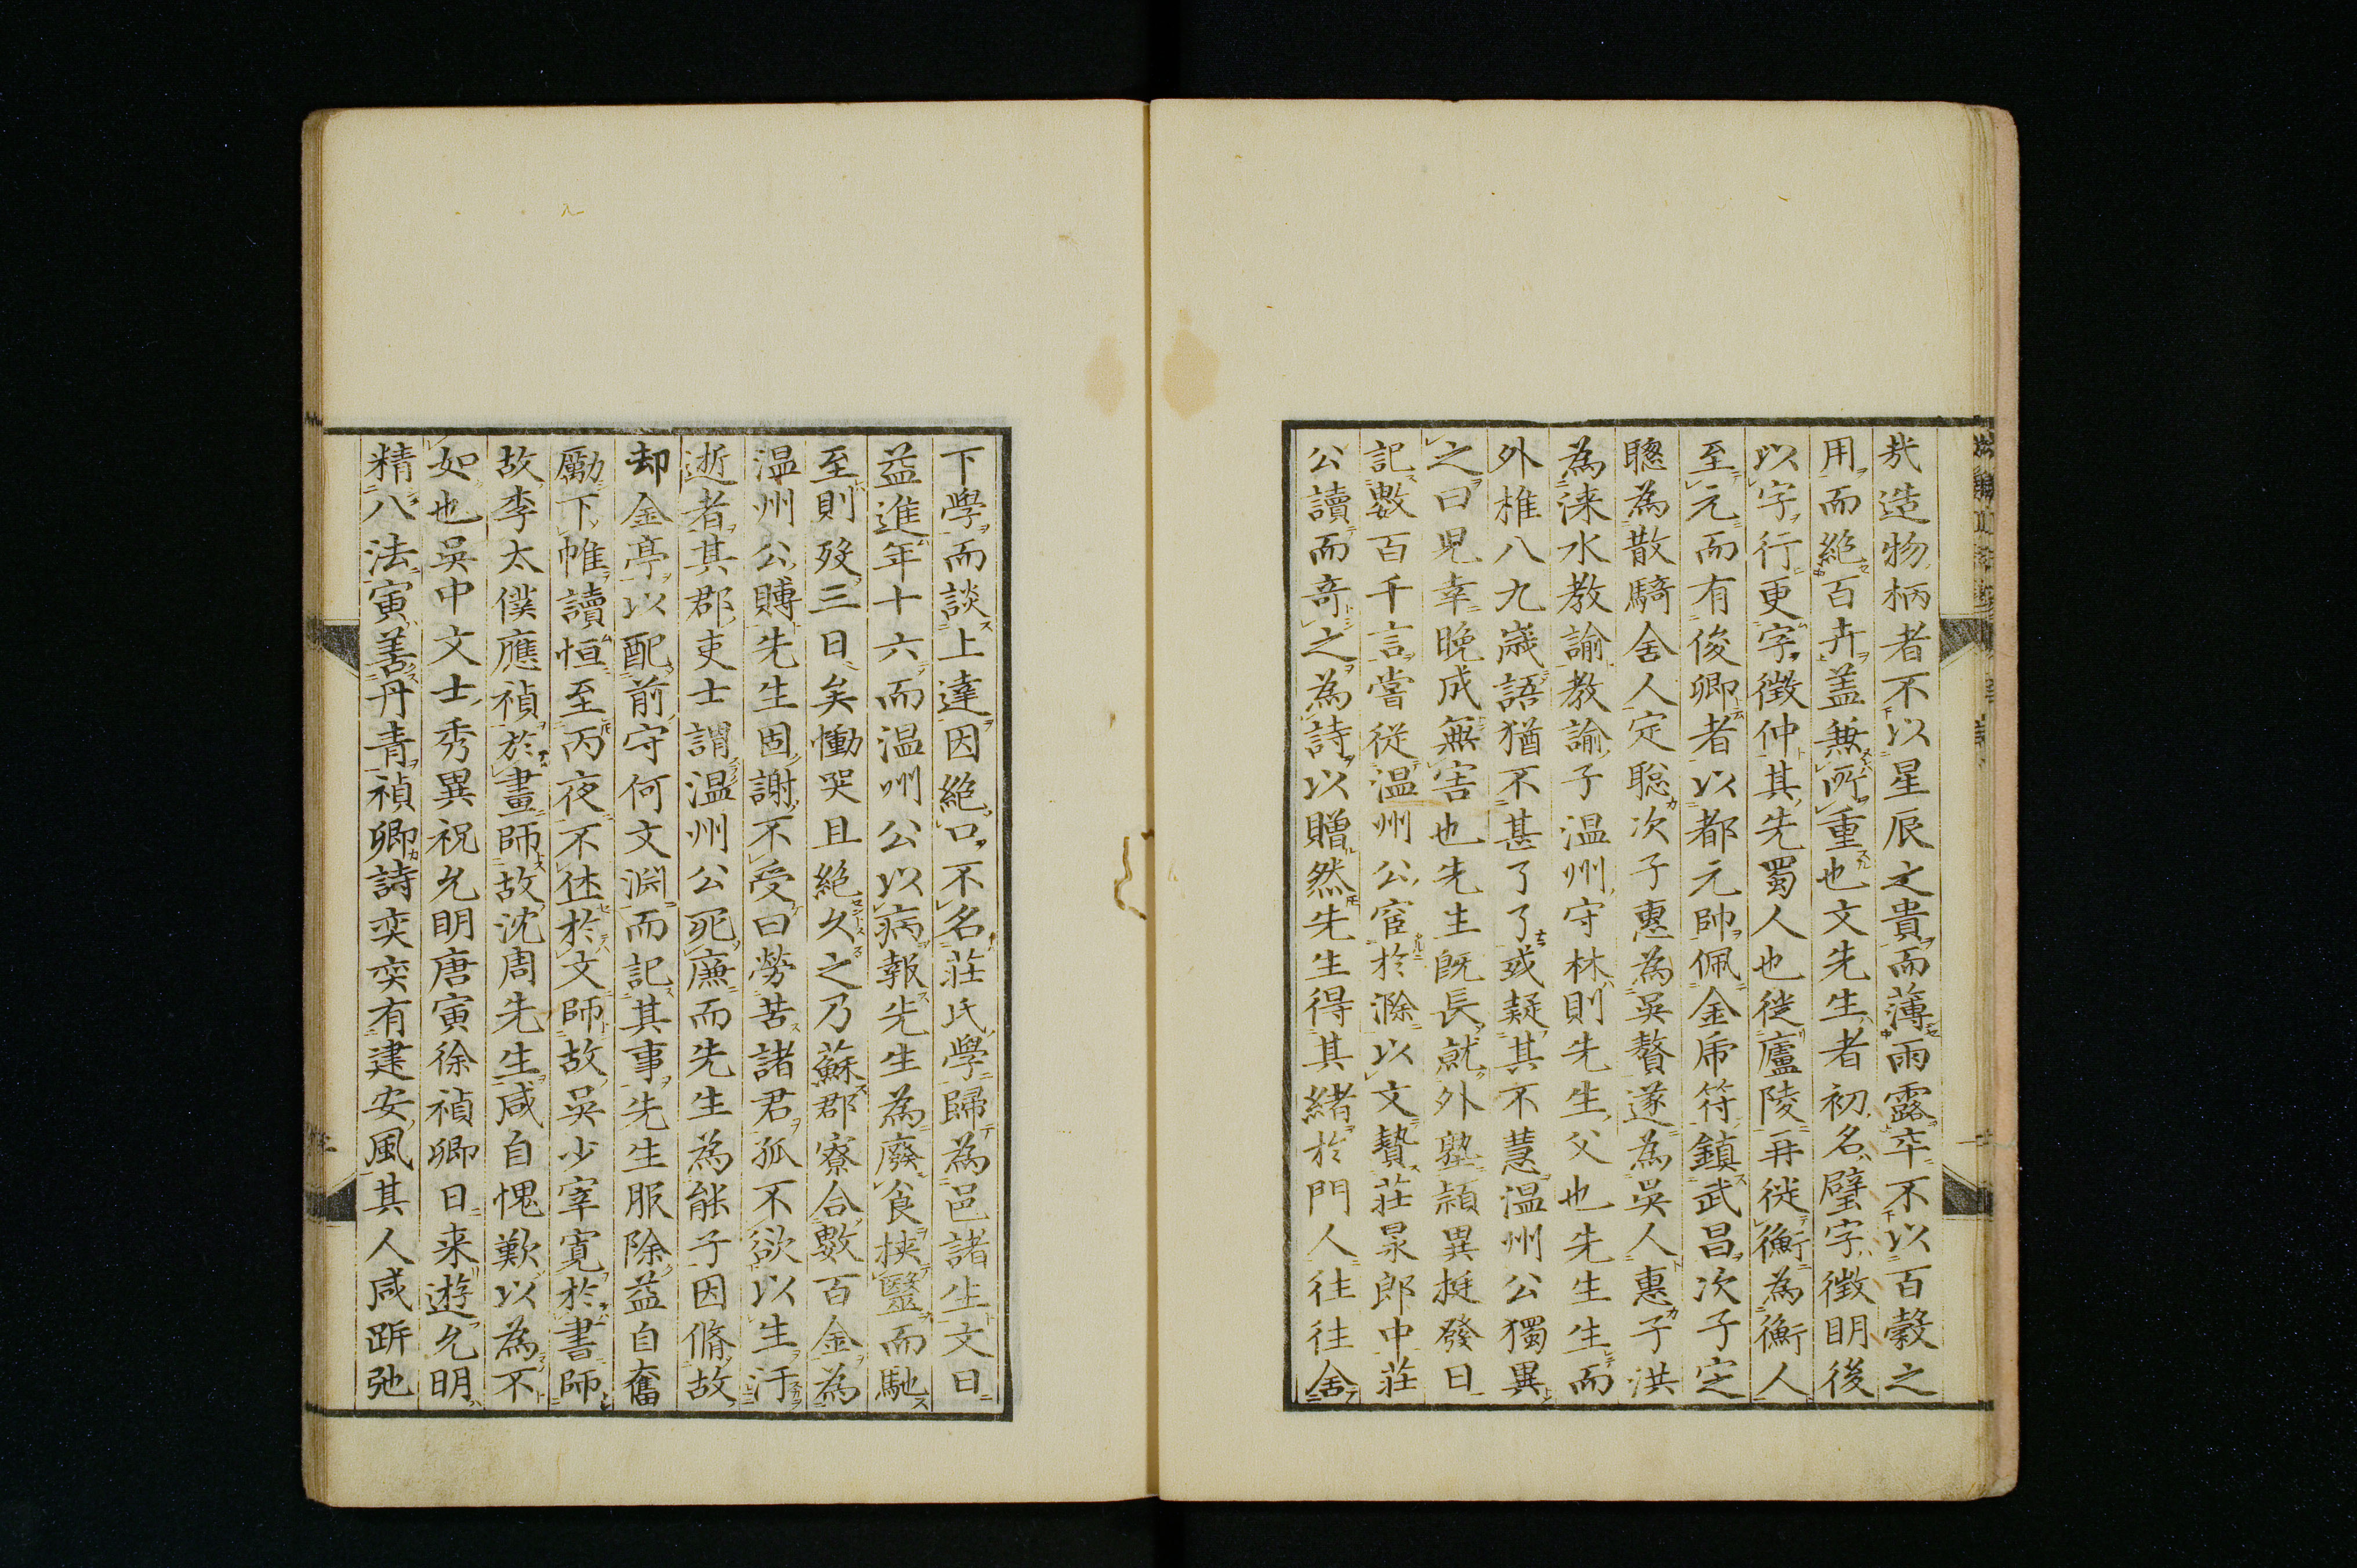 哉造物柄者不以星辰之貴而薄雨露卒不以百穀之
用而絕百卉盖兼所重也文先生者初名璧字徵明後
以字行更字徵仲其先蜀人也徙廬陵再徙衡為衡人
至元而有俊卿者以都元帥佩金虎符鎮武昌次子定
聰為散騎舍人定聡次子惠為吳贅遂為吳人惠子洪
為涞水教諭教諭子温州守林則先生父也先生生而
外椎八九歳語猶不甚了了或疑其不慧温州公獨異
之曰兒幸晚成無害也先生既長就外塾穎異挺發日
記數百千言嘗從温州公宦於滁以文贄莊㫤郎中莊
公讀而奇之為詩以贈然先生得其緒於門人往往舍
下學而談上達因絕口不名莊氏學歸為邑諸生文日
益進年十六而温州公以病報先生為廢食挟醫而馳
至則歿三日矣慟哭且絕久之乃蘇郡寮合數百金為
温州公賻先生固謝不受曰勞苦諸君孤不欲以生汙
逝者其郡吏士謂温州公死廉而先生為能子因脩故
却金亭以配前守何文淵而記其事先生服除益自奮
勵下帷讀恒至丙夜不休於文師故吳少宰寛於書師
故李太僕應禎於畫師故沈周先生咸自愧歎以為不
如也吳中文士秀異祝允明唐寅徐禎卿日来遊允明
精八法寅善丹青禎卿詩奕奕有建安風其人咸跅弛